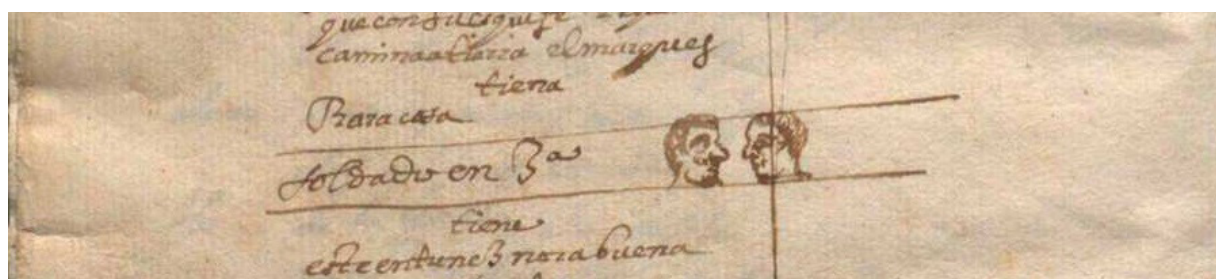 que con
camina a tierra el marques
tierra
Rara cosa
soldado en 3ª
tiene
este entunez norabuena